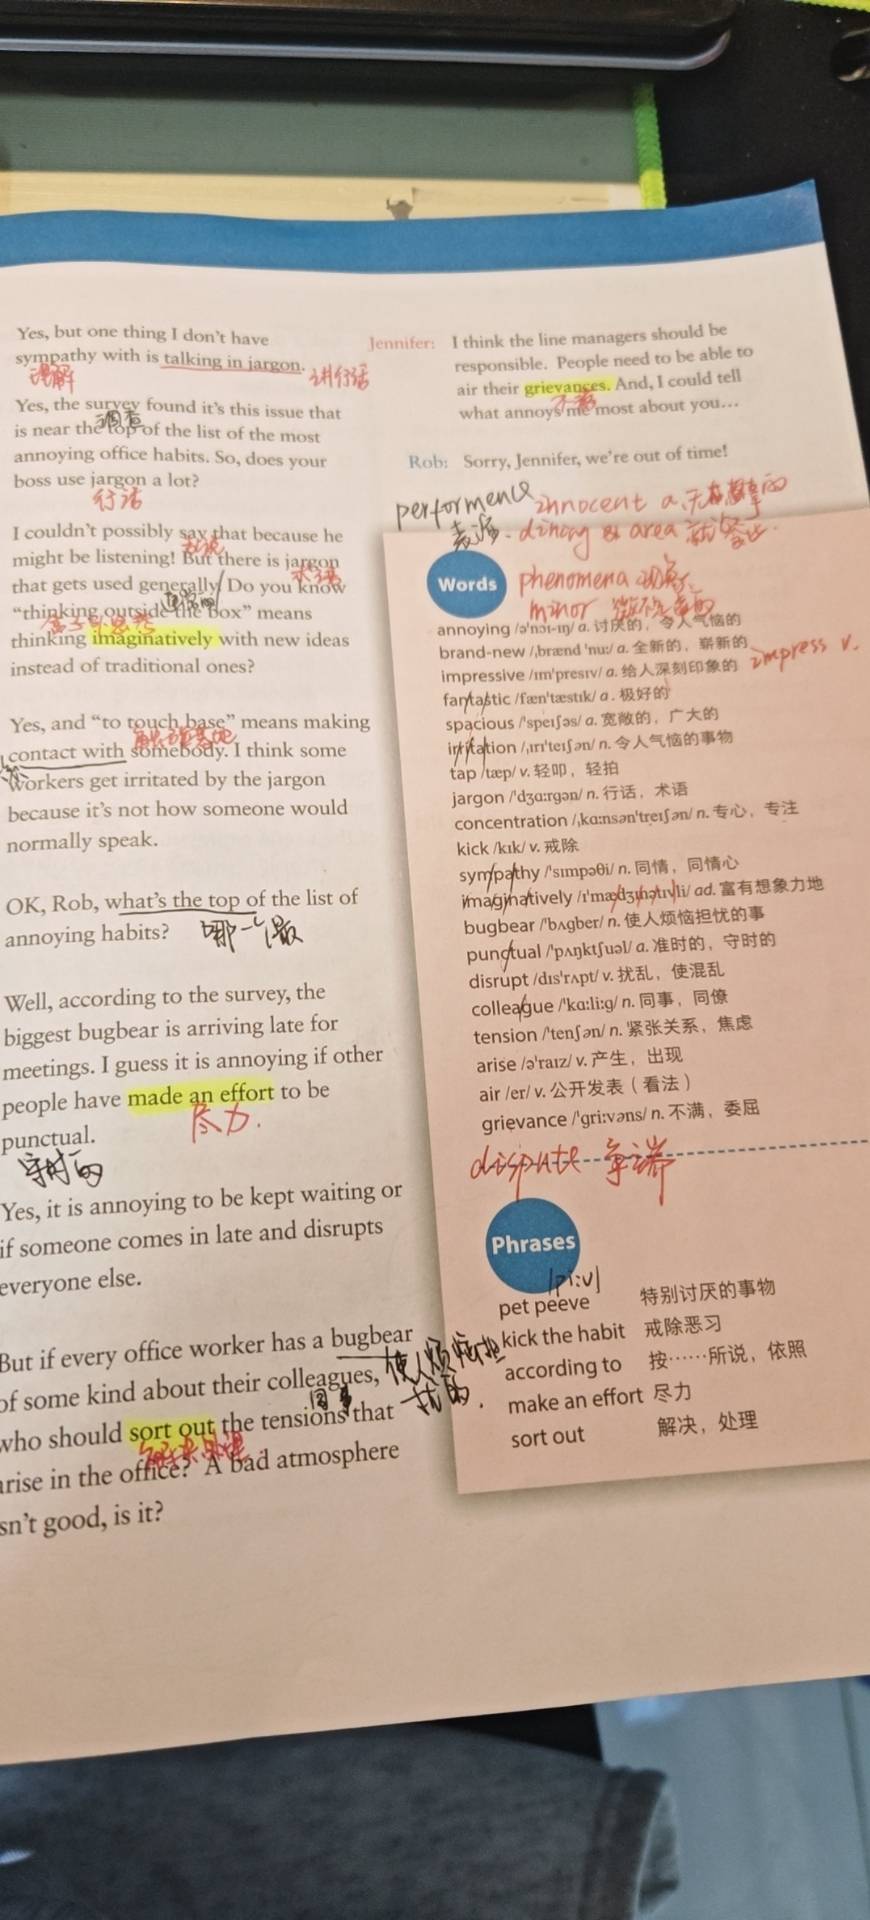 Yes, but one thing I don't have
sympathy with is talking in jargon.
理解
讲行话
Yes, the survey found it's this issue that
调查
is near the top of the list of the most
annoying office habits. So, does your
boss use jargon a lot?
行话
I couldn't possibly say that because he
might be listening! But there is jargon
that gets used generally. Do you know
"thinking outside the box" means
thinking imaginatively with new ideas
instead of traditional ones?
Yes, and "to touch base" means making
contact with somebody. I think some
workers get irritated by the jargon
because it's not how someone would
normally speak.
OK, Rob, what's the top of the list of
annoying habits?
哪一个最
Well, according to the survey, the
biggest bugbear is arriving late for
meetings. I guess it is annoying if other
people have made an effort to be
尽力.
punctual.
守时的
Yes, it is annoying to be kept waiting or
if someone comes in late and disrupts
everyone else.
But if every office worker has a bugbear
使人烦恼担
of some kind about their colleagues,
忧的.
同事
who should sort out the tensions that
解决处理
arise in the office? A bad atmosphere
sn't good, is it?
Jennifer: I think the line managers should be
responsible. People need to be able to
air their grievances. And, I could tell
不满
what annoys me most about you...
Rob: Sorry, Jennifer, we're out of time!
performence
innocent a.
area
Words
phenomena 现象
minor
annoying /ə'nɔɪ-ɪŋ/ a. 讨厌的, 令人气恼的
brand-new /ˌbrænd 'nuː/ a. 全新的, 崭新的
impressive /ɪm'presɪv/ a. 给人深刻印象的
impress v.
fantastic /fæn'tæstɪk/ a. 极好的
spacious /'speɪʃəs/ a. 宽敞的, 广大的
irritation /ˌɪrɪ'teɪʃən/ n. 令人气恼的事物
tap /tæp/ v. 轻叩, 轻拍
jargon /'dʒɑːrgən/ n. 行话, 术语
concentration /ˌkɑːnsən'treɪʃən/ n. 专心, 专注
kick /kɪk/ v. 戒除
sympathy /'sɪmpəθi/ n. 同情, 同情心
imaginatively /ɪ'mædʒɪnətɪvli/ ad. 富有想象力地
bugbear /'bʌgber/ n. 使人烦恼担忧的事
punctual /'pʌŋktʃuəl/ a. 准时的, 守时的
disrupt /dɪs'rʌpt/ v. 扰乱, 使混乱
colleague /'kɑːliːg/ n. 同事, 同僚
tension /'tenʃən/ n. 紧张关系, 焦虑
arise /ə'raɪz/ v. 产生, 出现
air /er/ v. 公开发表（看法）
grievance /'griːvəns/ n. 不满, 委屈
dispute 争端
Phrases
/pi:v/
pet peeve 特别讨厌的事物
kick the habit 戒除恶习
according to 按……所说, 依照
make an effort 尽力
sort out 解决, 处理